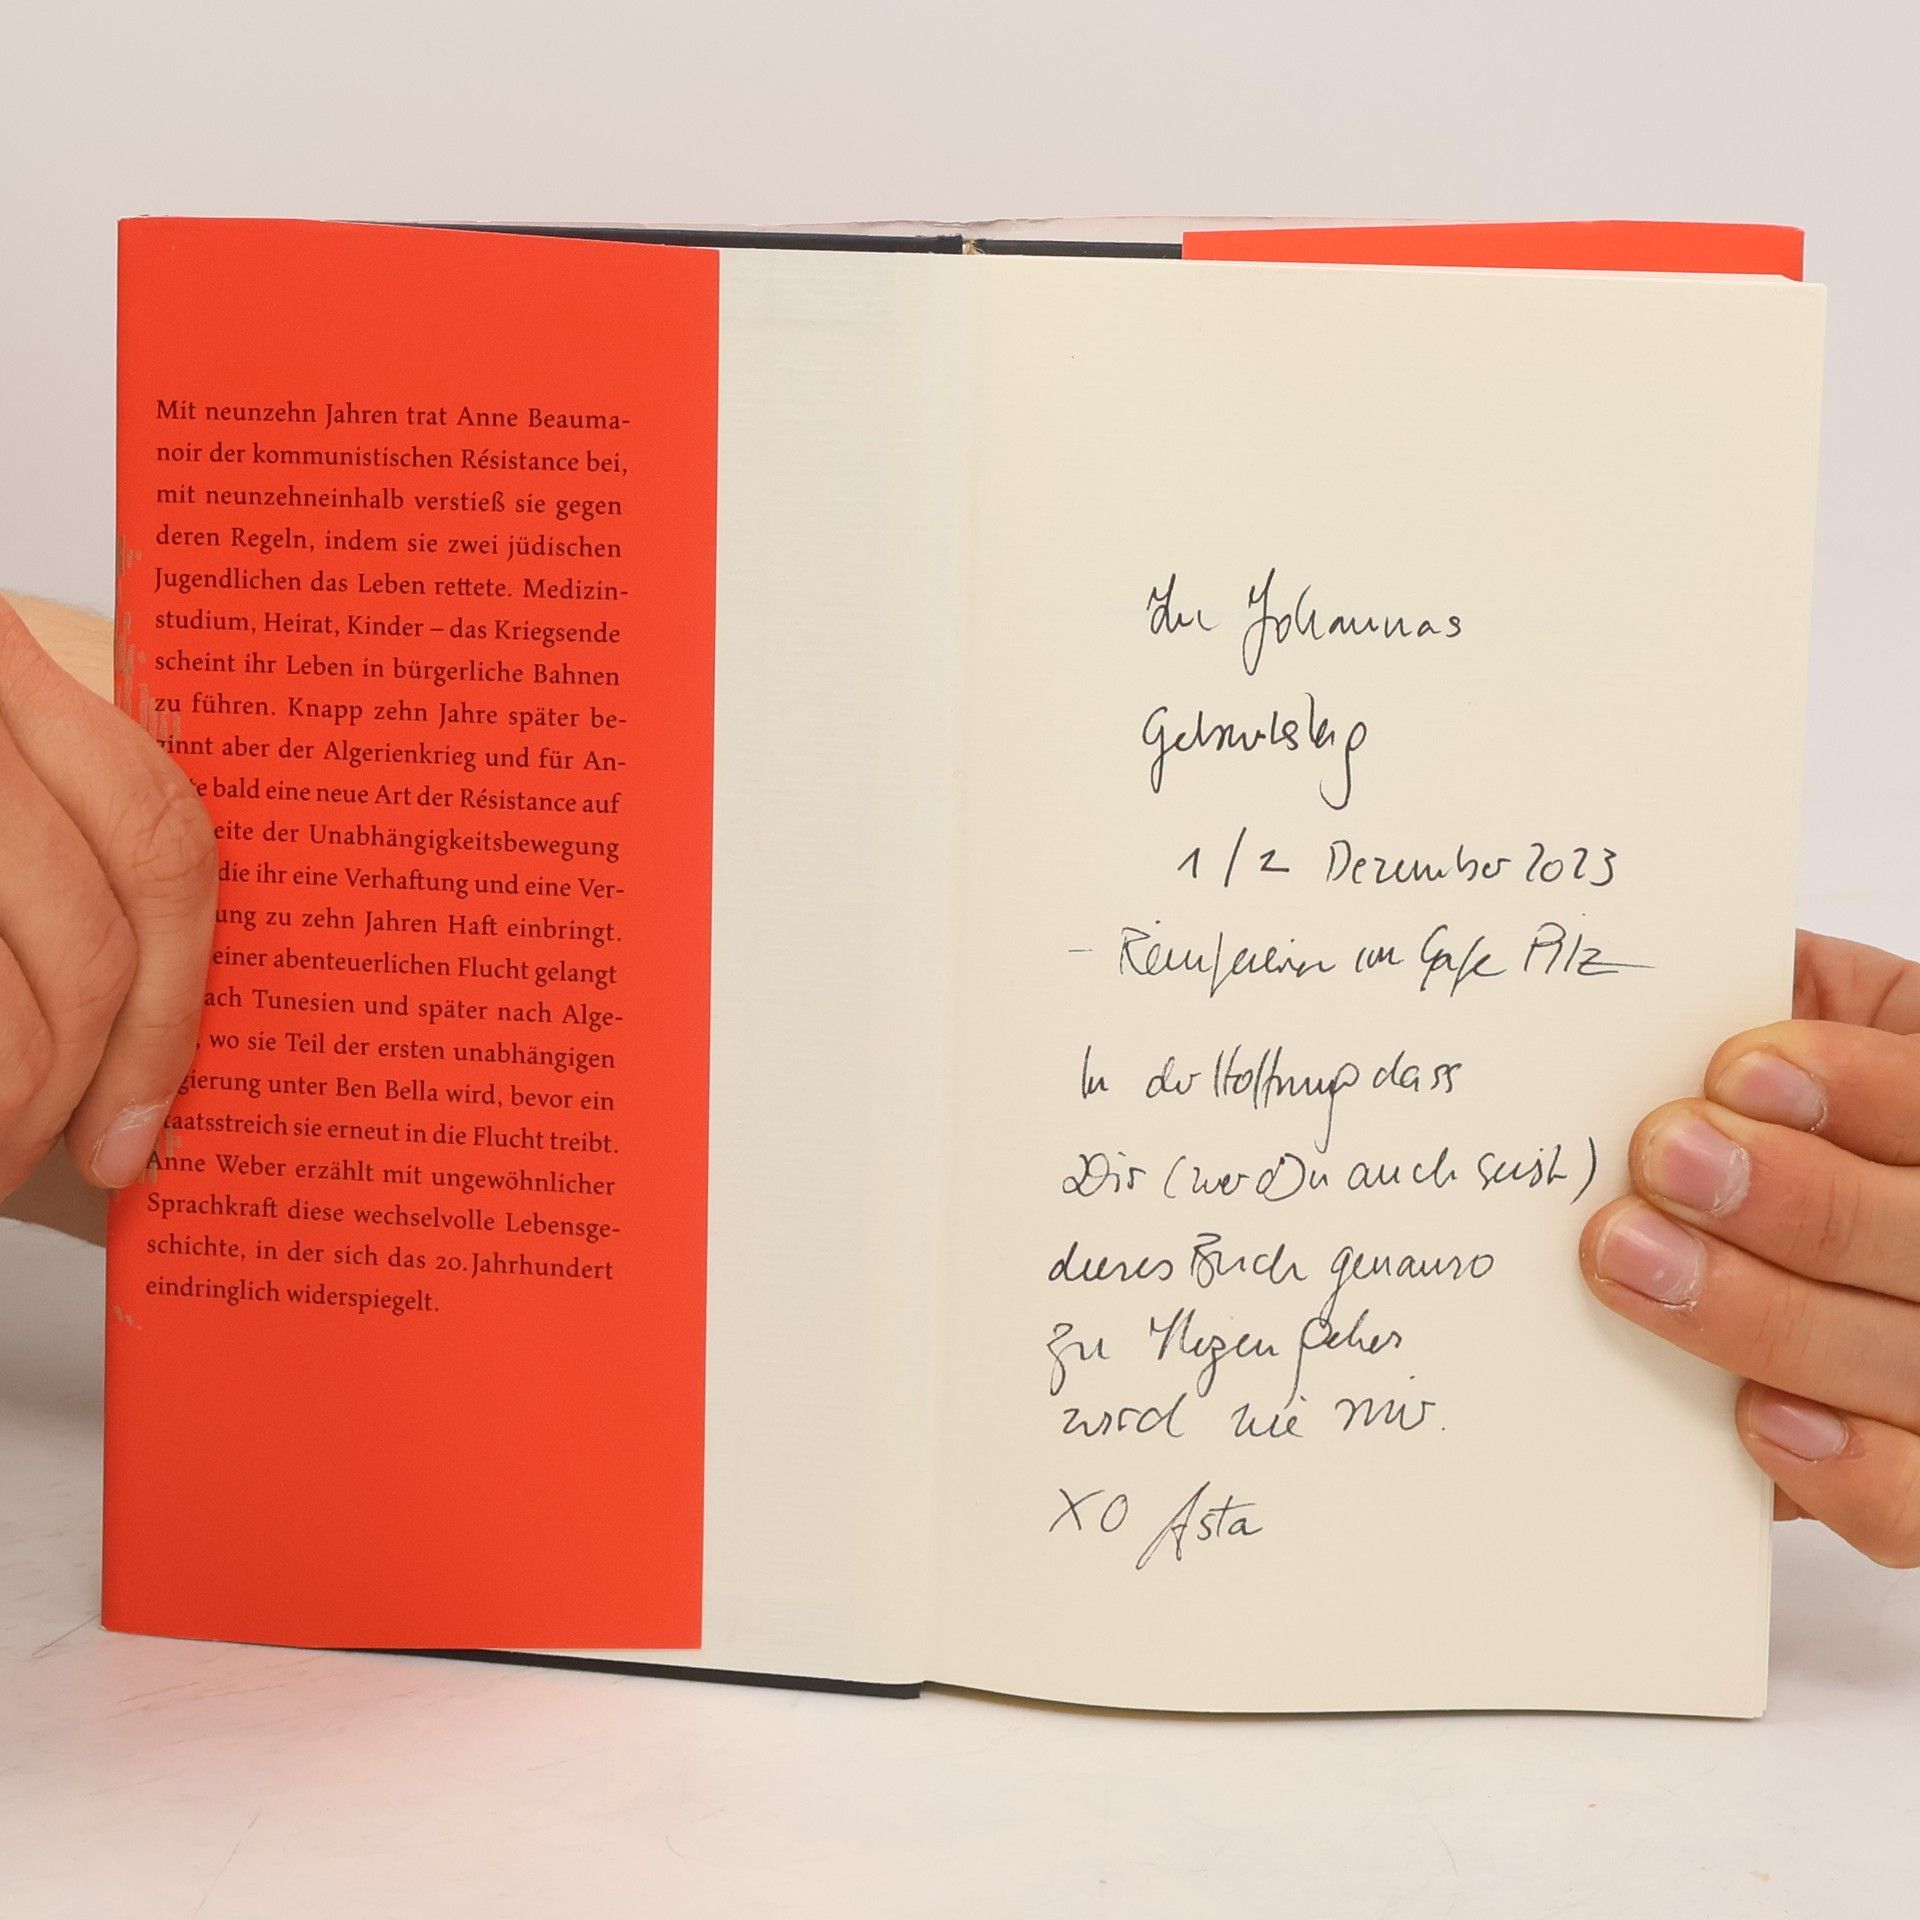 Mit neunzehn Jahren trat Anne Beauma-
noir der kommunistischen Résistance bei,
mit neunzehneinhalb verstieß sie gegen
deren Regeln, indem sie zwei jüdischen
Jugendlichen das Leben rettete. Medizin-
studium, Heirat, Kinder – das Kriegsende
scheint ihr Leben in bürgerliche Bahnen
zu führen. Knapp zehn Jahre später be-
ginnt aber der Algerienkrieg und für An-
te bald eine neue Art der Résistance auf
eite der Unabhängigkeitsbewegung
die ihr eine Verhaftung und eine Ver-
ung zu zehn Jahren Haft einbringt.
einer abenteuerlichen Flucht gelangt
ach Tunesien und später nach Alge-
, wo sie Teil der ersten unabhängigen
gierung unter Ben Bella wird, bevor ein
taatsstreich sie erneut in die Flucht treibt.
Anne Weber erzählt mit ungewöhnlicher
Sprachkraft diese wechselvolle Lebensge-
schichte, in der sich das 20. Jahrhundert
eindringlich widerspiegelt.
Zu Johannas
Geburtstag
1/2 Dezember 2023
- Reinfeiern im Cafe Pilz
In der Hoffnung dass
Dir (wer Du auch seist)
dieses Buch genauso
zu Herzen gehen
wird wie mir.
XO Asta